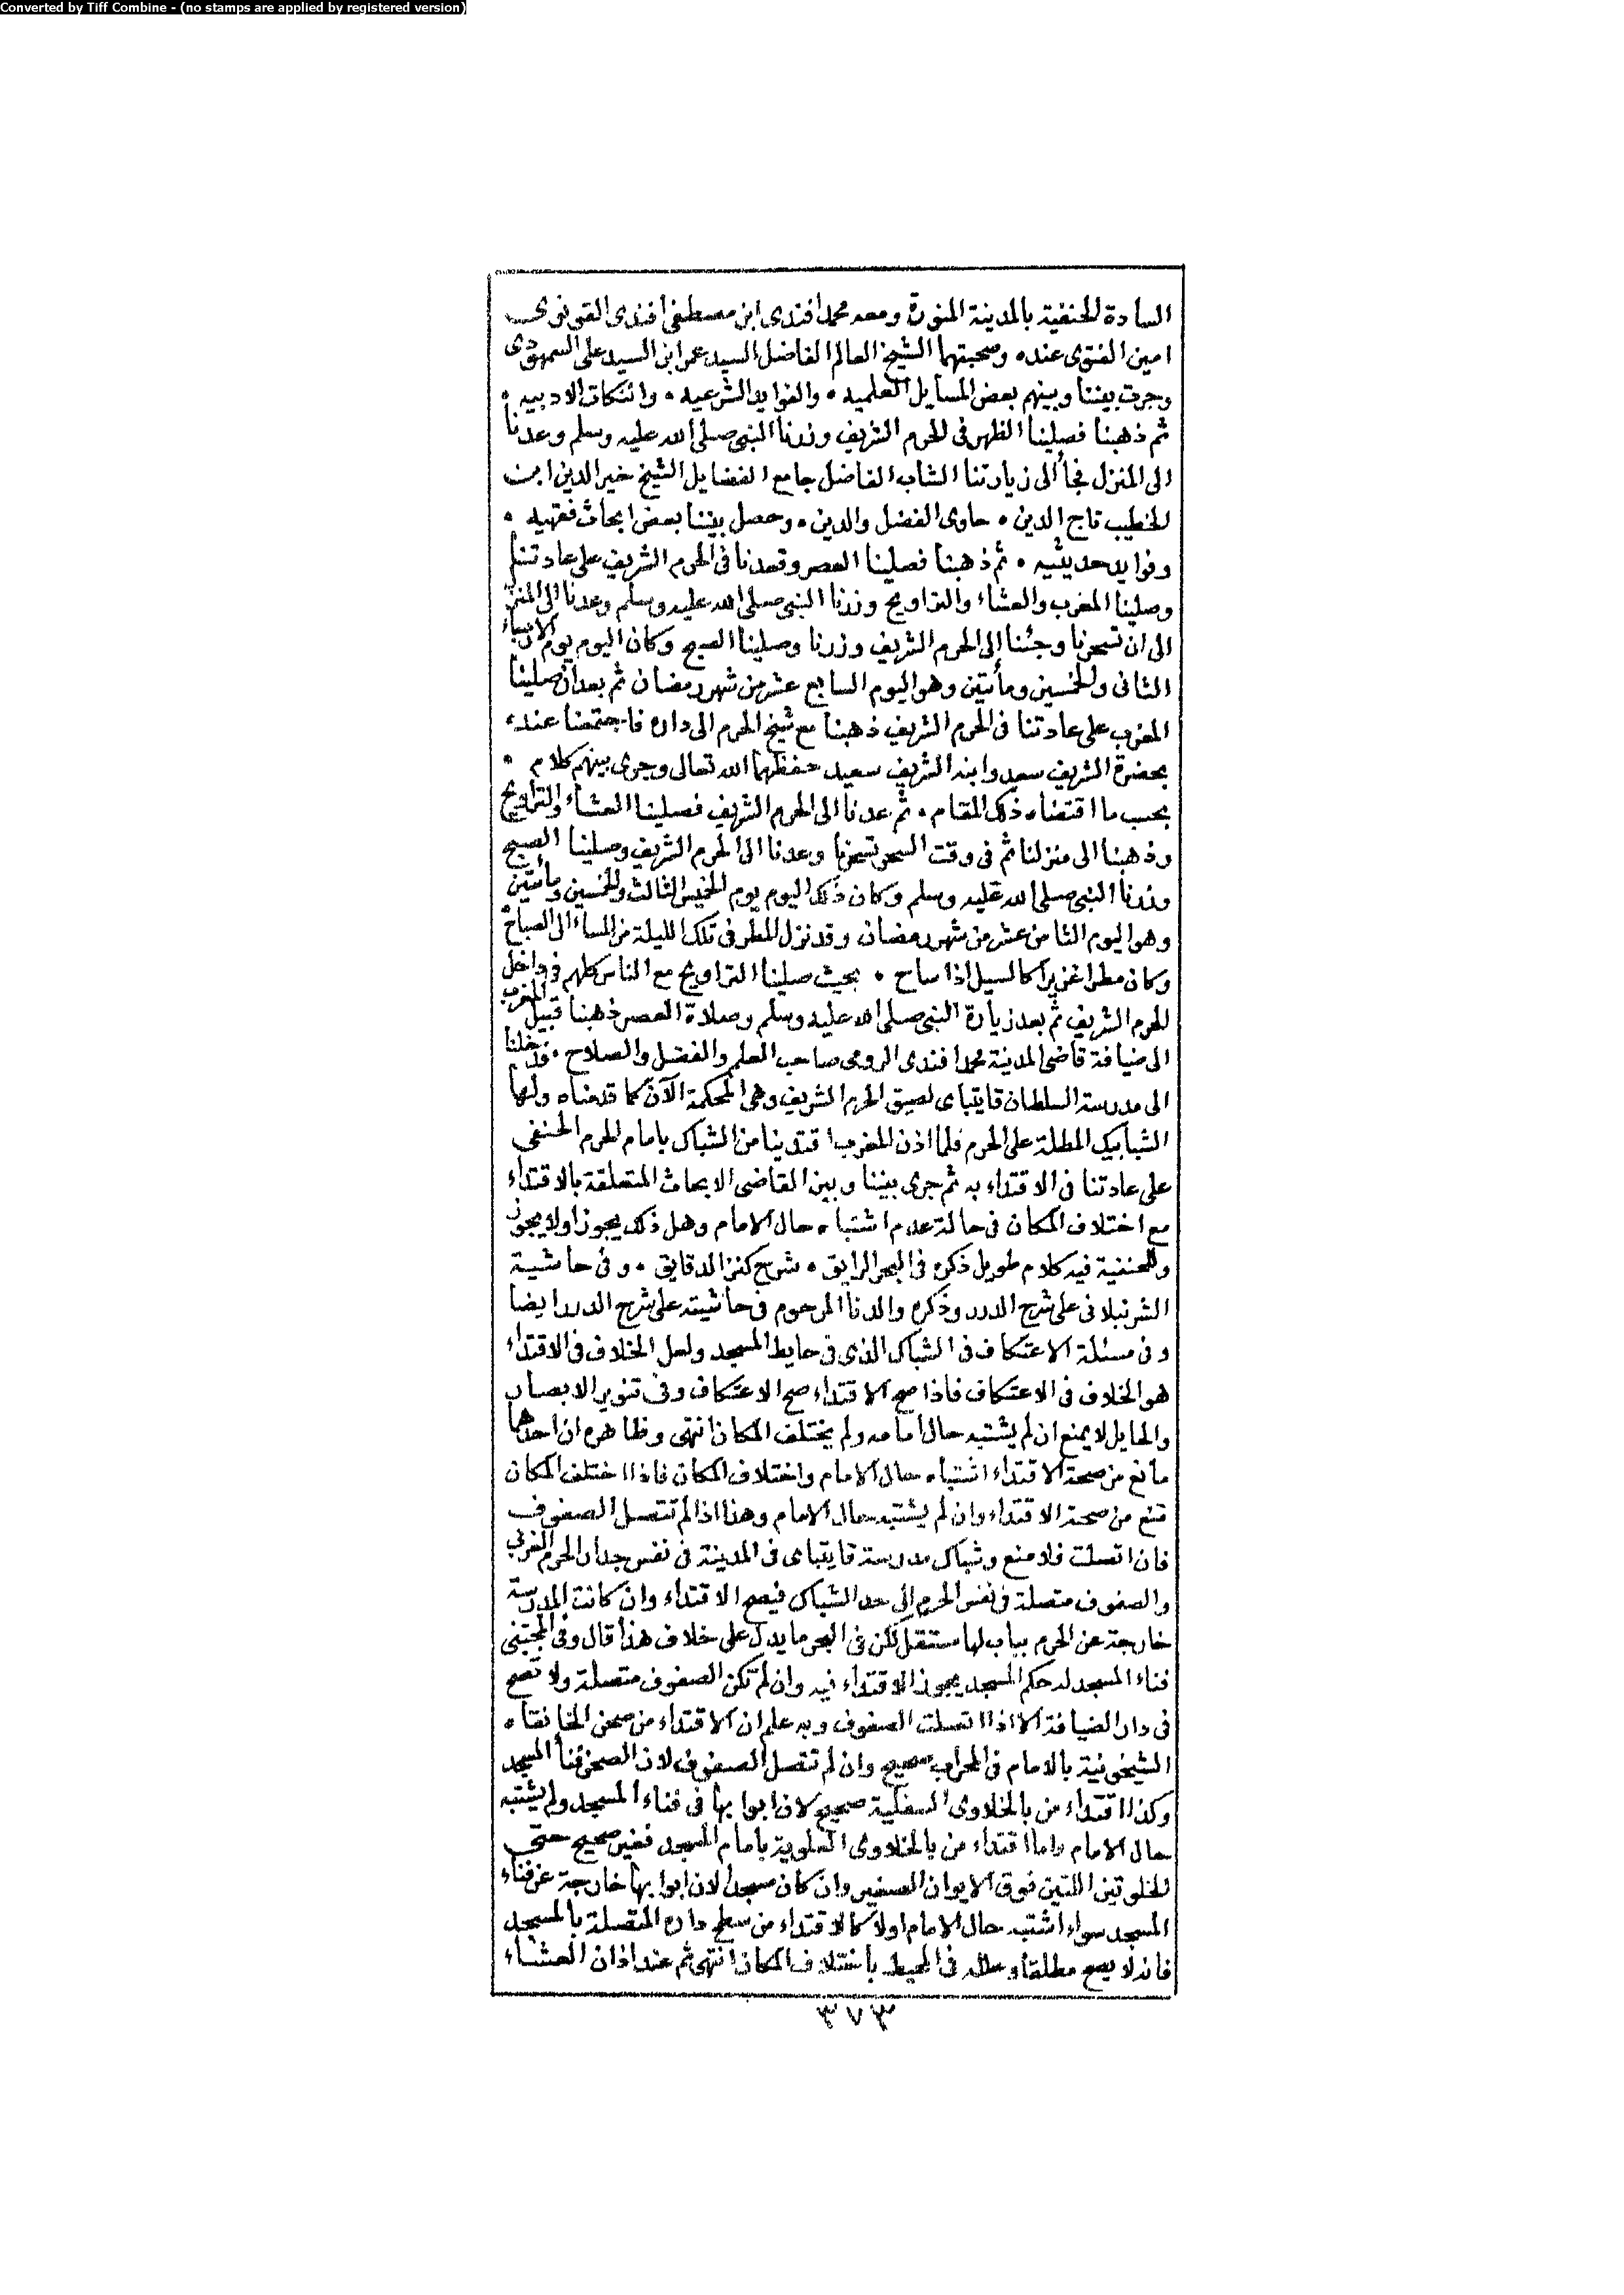 Converted by Tiff Combine - (no stamps are applied by registered version)
السادة الحنفية بالمدينة المنورة ومعه محمد افندى ابن مصطفى افندى القونوى
امين الفتوى عنده وصحبتهما الشيخ العالم الفاضل السيد عمر ابن السيد على السمهودى
وجرت بيننا وبينهم بعض المسايل العلميه • والفوايد الشرعيه • والنكات الادبيه •
ثم ذهبنا فصلينا الظهر فى الحرم الشريف وزرنا النبى صلى الله عليه وسلم وعدنا
الى المنزل فجأ الى زيارتنا الشاب الفاضل جامع الفضايل الشيخ خير الدين ابن
الخطيب تاج الدين • حاوى الفضل والدين • وحصل بيننا بعض ابحاث فقهيه •
وفوايد حديثيه • ثم ذهبنا فصلينا العصر وقعدنا فى الحرم الشريف على عادتنا
وصلينا المغرب والعشاء والتراويح وزرنا النبى صلى الله عليه وسلم وعدنا الى المنزل
الى ان تسحرنا وجئنا الى الحرم الشريف وزرنا وصلينا الصبح وكان اليوم يوم الاربعاء
الثانى والخمسين ومأتين وهو اليوم السابع عشر من شهر رمضان ثم بعد ان صلينا
المغرب على عادتنا فى الحرم الشريف ذهبنا مع شيخ الحرم الى داره فاجتمعنا عنده
بحضرة الشريف سعد وابنه الشريف سعيد حفظهما الله تعالى وجرى بينهم كلام •
بحسب ما اقتضاه ذلك المقام • ثم عدنا الى الحرم الشريف فصلينا العشاء والتراويح
وذهبنا الى منزلنا ثم فى وقت السحر تسحرنا وعدنا الى الحرم الشريف وصلينا الصبح
وزرنا النبى صلى الله عليه وسلم وكان ذلك اليوم يوم الخميس الثالث والخمسين ومأتين
وهو اليوم الثامن عشر من شهر رمضان وقد نزل المطر فى تلك الليلة من المساء الى الصباح
وكان مطرا غزيرا كالسيل اذا ساح • بحيث صلينا التراويح مع الناس كلهم فى داخل
الحرم الشريف ثم بعد زيارة النبى صلى الله عليه وسلم وصلاة العصر ذهبنا قبيل المغرب
الى ضيافة قاضى المدينة محمد افندى الرومى صاحب العلم والفضل والصلاح • ودخلنا
الى مدرسة السلطان قايتباى لصيق الحرم الشريف وهى المحكمة الآن كما قدمناه ولها
الشبابيك المطلة على الحرم فلما اذن المغرب اقتدينا من الشباك بامام الحرم الحنفى
على عادتنا فى الاقتداء به ثم جرى بيننا وبين القاضى الابحاث المتعلقة بالاقتداء
مع اختلاف المكان فى حالة عدم اشتباه حال الامام وهل ذلك يجوز اولا يجوز
وللحنفية فيه كلام طويل ذكره فى البحر الرايق • شرح كنز الدقايق • وفى حاشية
الشرنبلانى على شرح الدرر وذكره والدنا المرحوم فى حاشيته على شرح الدرر ايضا
وفى مسئلة الاعتكاف فى الشباك الذى فى حايط المسجد ولعل الخلاف فى الاقتداء
هو الخلاف فى الاعتكاف فاذا صح الاقتداء صح الاعتكاف وفى تنوير الابصار
والحايل لا يمنع ان لم يشتبه حال امامه ولم يختلف المكان انتهى وظاهره ان احدهما
مانع من صحة الاقتداء اشتباه حال الامام واختلاف المكان فاذا اختلف المكان
منع من صحة الاقتداء وان لم يشتبه حال الامام وهذا اذا لم تتصل الصفوف
فان اتصلت فلا منع وشباك مدرسة قايتباى فى المدينة فى نفس جدار الحرم الغربى
والصفوف متصلة فى نفس الحرم الى حد الشباك فيصح الاقتداء وان كانت المدرسة
خارجة عن الحرم بباب لها مستقل لكن فى البحر ما يدل على خلاف هذا قال وفى المجتبى
فناء المسجد له حكم المسجد يجوز الاقتداء فيه وان لم تكن الصفوف متصلة ولا تصح
فى دار الضيافة الا اذا اتصلت الصفوف وبه علم ان الاقتداء من صحن الخانقاه
الشيخونية بالامام فى المحراب صحيح وان لم تتصل الصفوف لان الصحن فنأ المسجد
وكذا اقتداء من بالخلاوى السفلية صحيح لان ابوابها فى فناء المسجد ولم يشتبه
حال الامام واما اقتداء من بالخلاوى العلوية بامام المسجد فغير صحيح حتى
الخلوتين اللتين فوق الايوان الصغير وان كان مسجدا لان ابوابها خارجة عن فناء
المسجد سواء اشتبه حال الامام اولا كالاقتداء من سطح داره المتصلة بالمسجد
فانه لا يصح مطلقا وعلله فى المحيط باختلاف المكان انتهى ثم عند اذان العشاء
٣٧٣